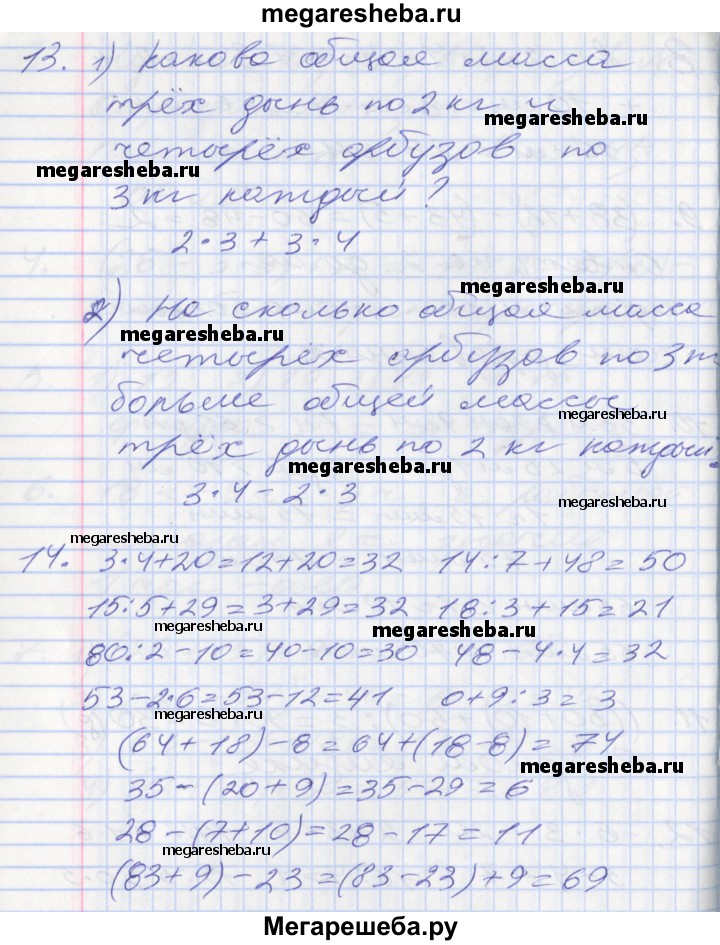 megaresheba.ru
13. 1) Какова общая масса
трёх дынь по 2 кг и
megaresheba.ru
четырёх арбузов по
megaresheba.ru
3 кг каждый?
2·3+3·4
megaresheba.ru
2) На сколько общая масса
megaresheba.ru
четырёх арбузов по 3
больше общей массы
megaresheba.ru
трёх дынь по 2 кг каждый.
megaresheba.ru
3·4-2·3
megaresheba.ru
megaresheba.ru
14. 3·4+20=12+20=32 14:7+48=50
15:5+29=3+29=32 18:3+15=21
megaresheba.ru
megaresheba.ru
80:2-10=40-10=30 48-4·4=32
53-2·6=53-12=41 0+9:3=3
megaresheba.ru
(64+18)-8=64+(18-8)=74
megaresheba.ru
35-(20+9)=35-29=6
28-(7+10)=28-17=11
megaresheba.ru
(83+9)-23=(83-23)+9=69
Мегарешеба.ру